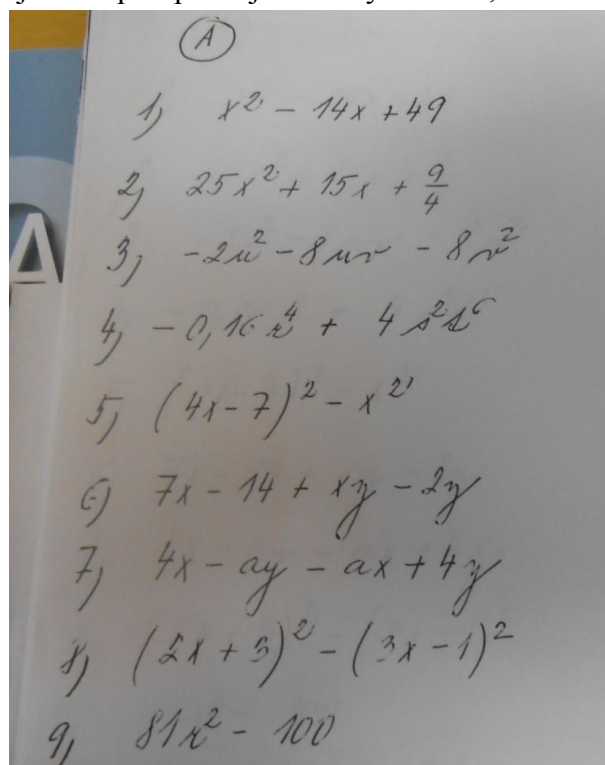 A
1) x² - 14x + 49
2) 25x² + 15x + 9/4
3) -2u² - 8uv - 8v²
4) -0,16r⁴ + 4s²t⁶
5) (4x-7)² - x²
6) 7x - 14 + xy - 2y
7) 4x - ay - ax + 4y
8) (5x + 3)² - (3x - 1)²
9) 81r² - 100
A